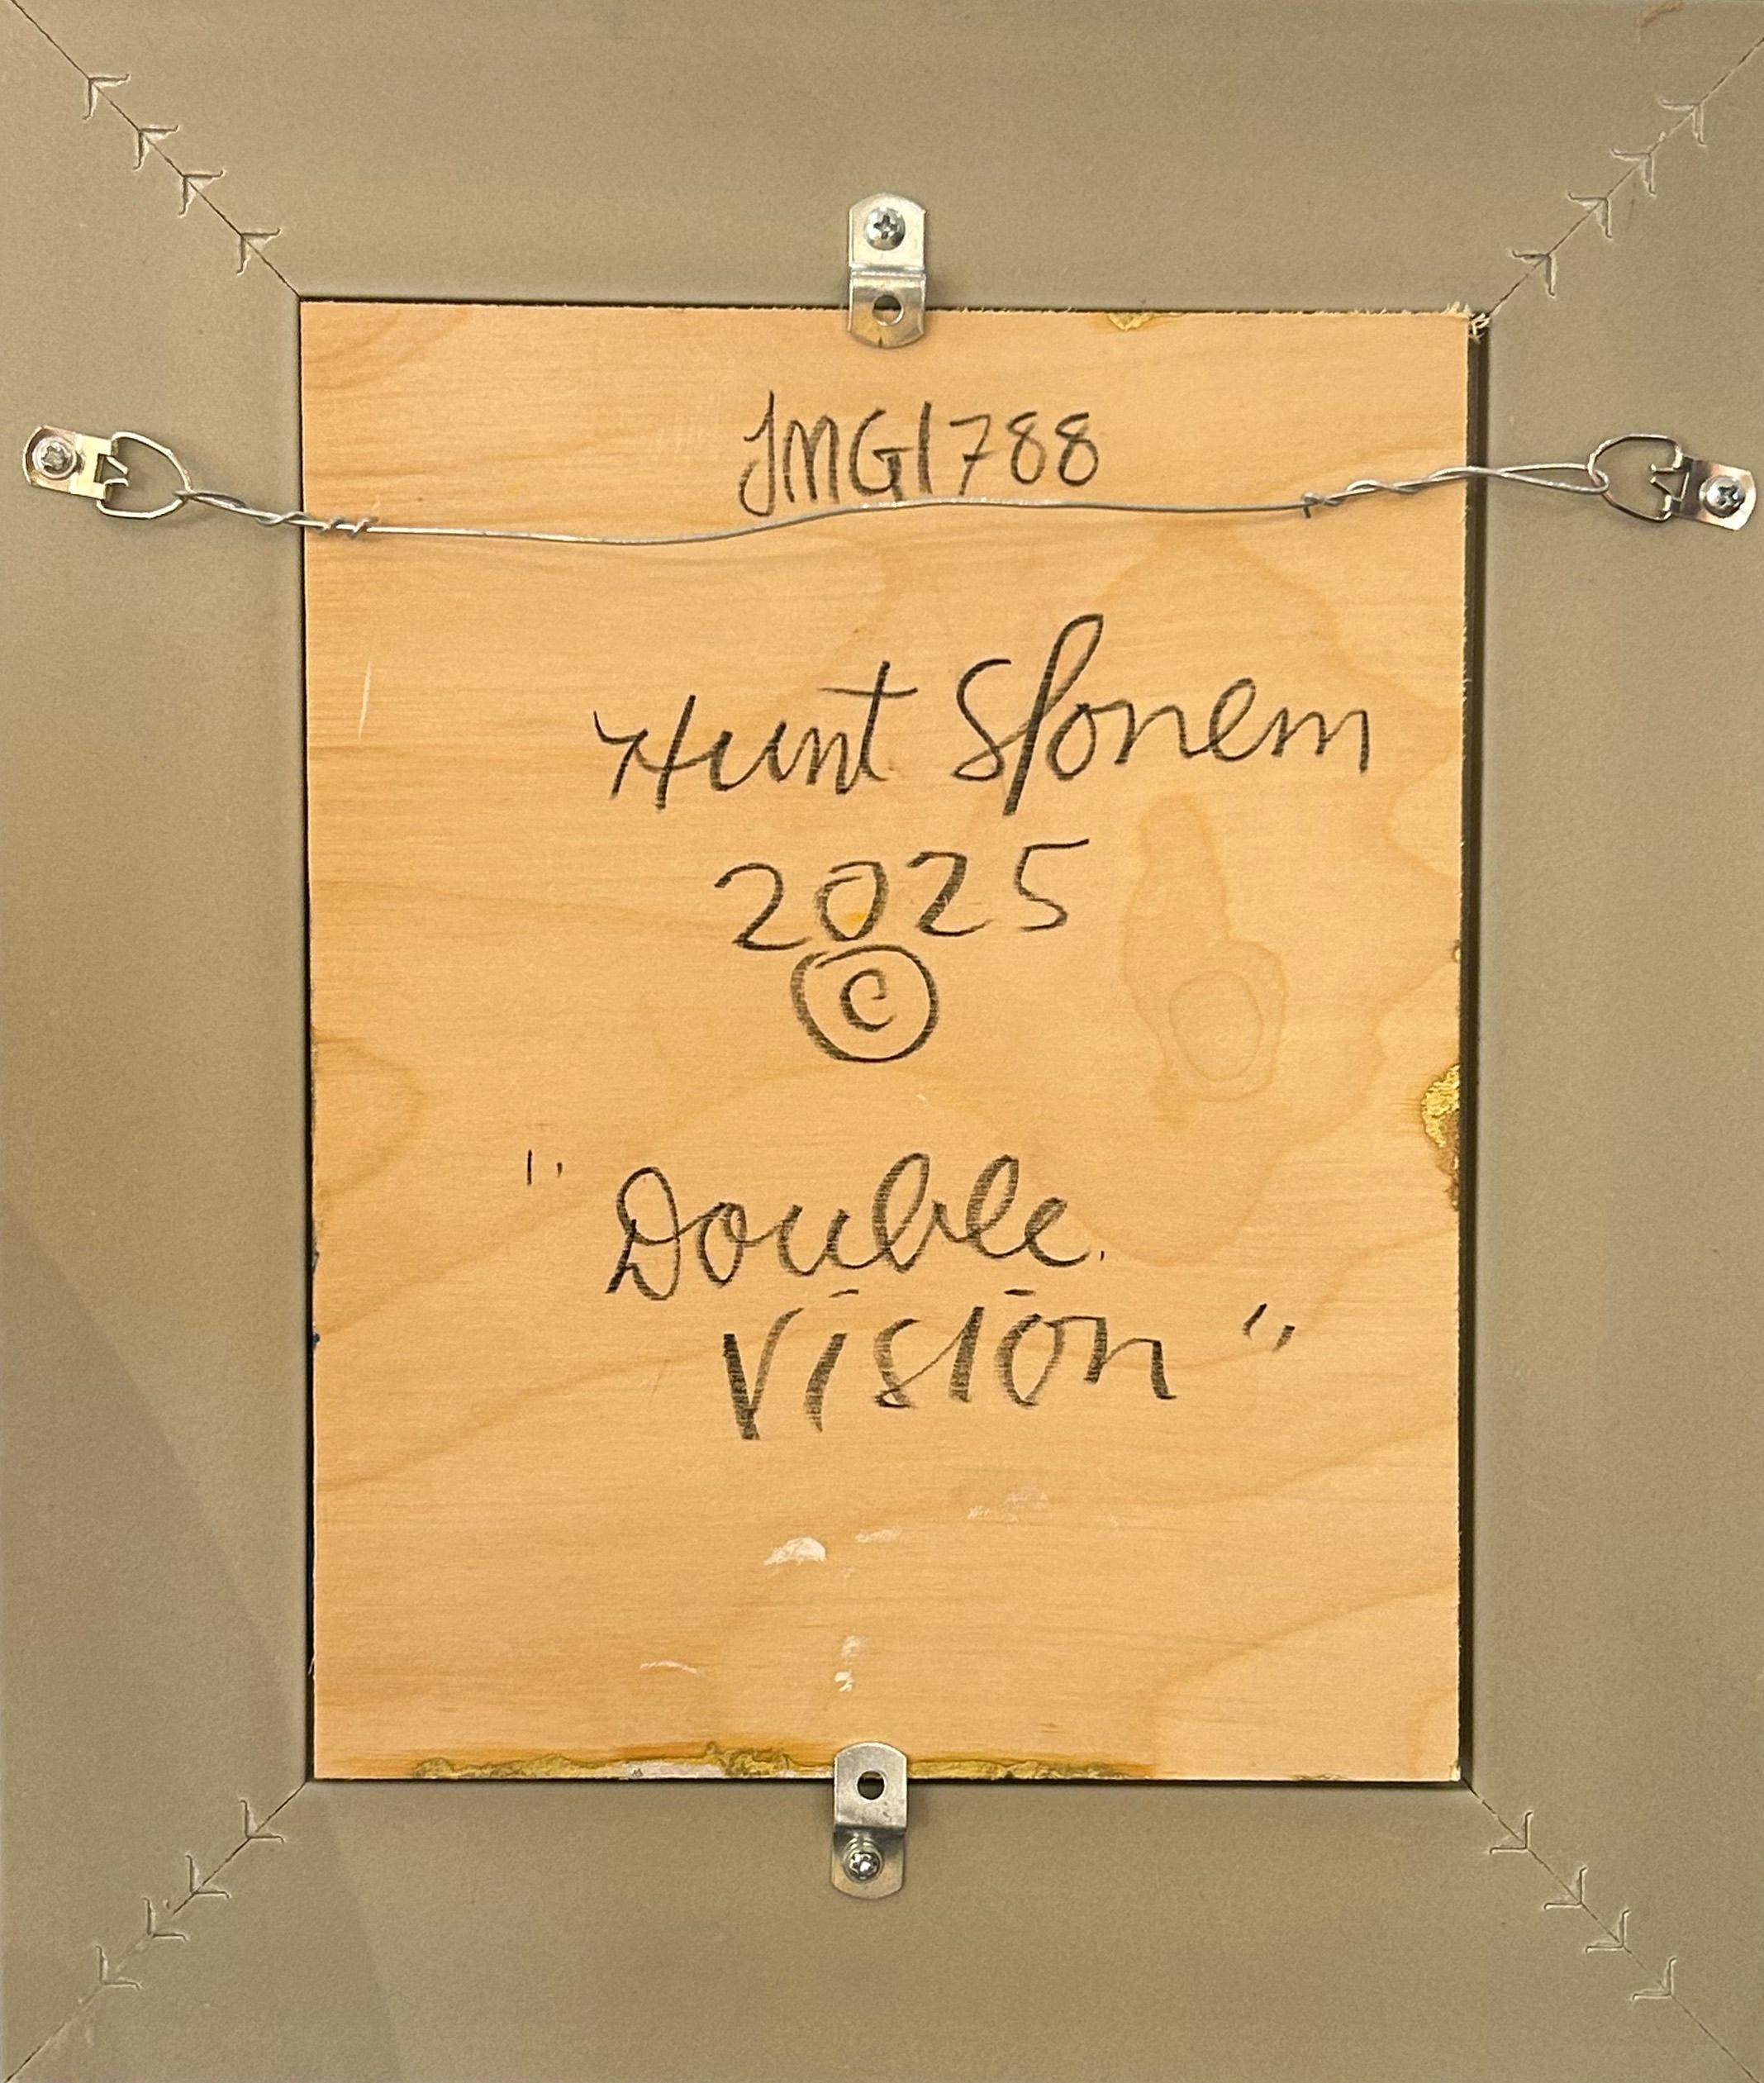 JMG1788
Hunt Slonem
2025
©
"Double
Vision"